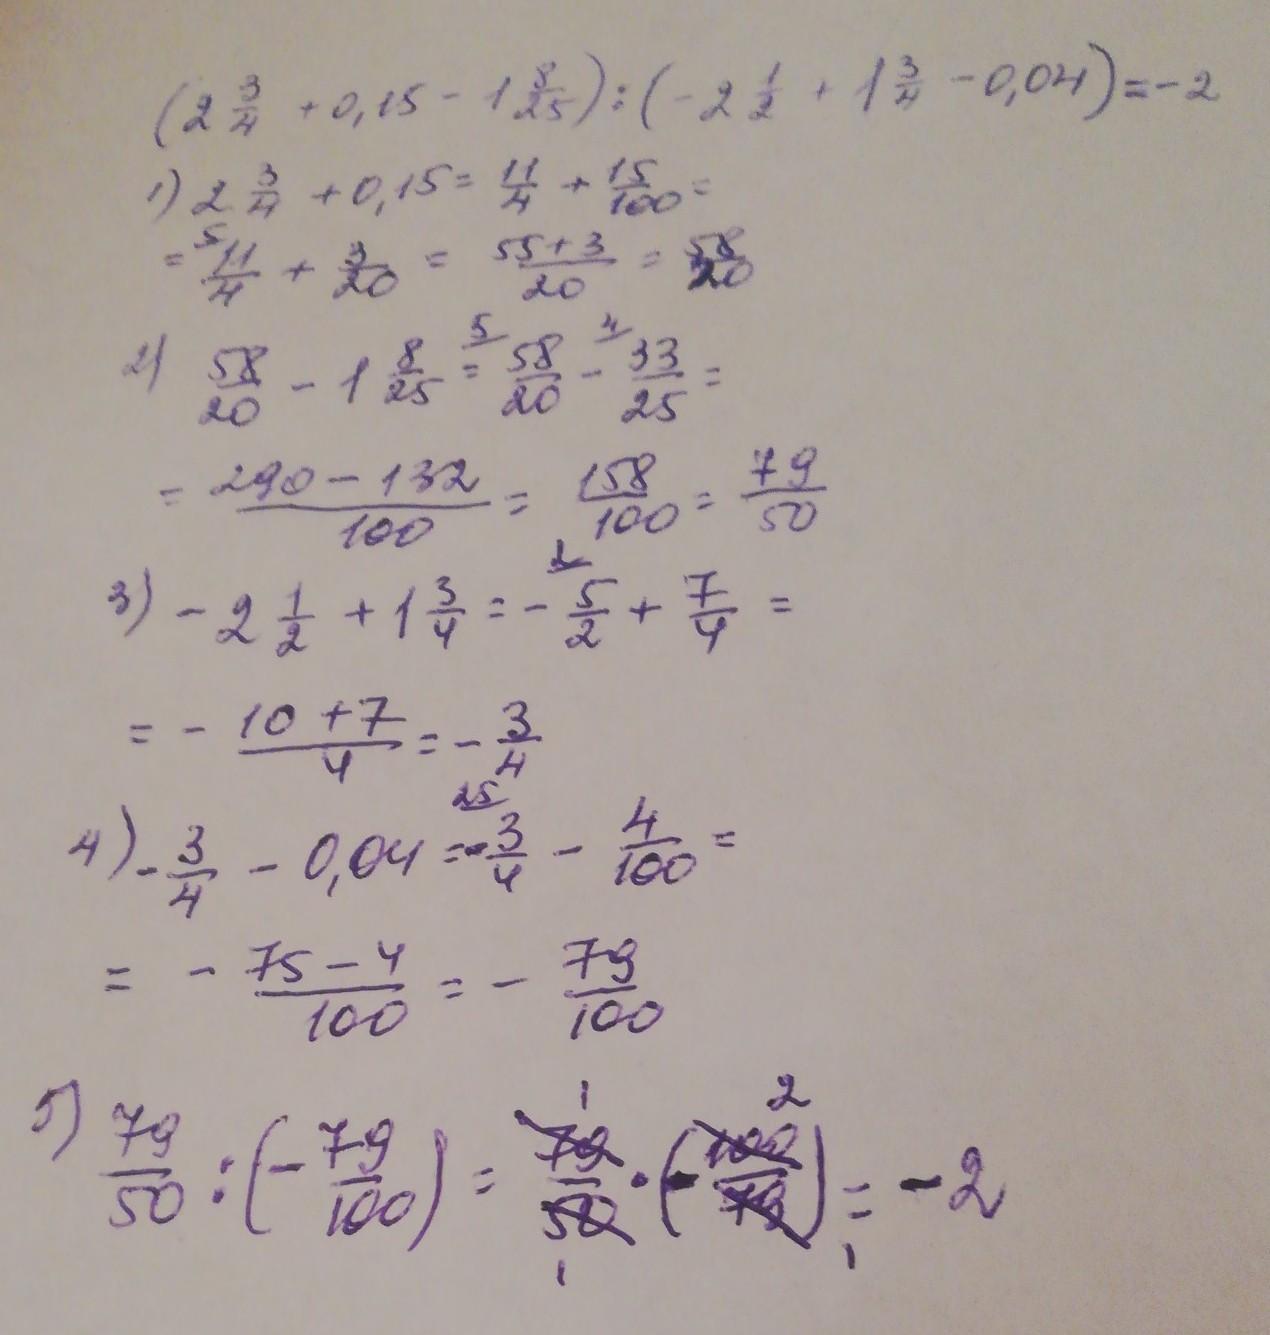 (2 3/4 + 0,15 - 1 8/25) : (-2 1/2 + 1 3/4 - 0,04) = -2
1) 2 3/4 + 0,15 = 11/4 + 15/100 =
= 5 11/4 + 3/20 = 55+3/20 = 58/20
2) 58/20 - 1 8/25 = 5 58/20 - 4 33/25 =
= 290-132/100 = 158/100 = 79/50
3) -2 1/2 + 1 3/4 = - 2 5/2 + 7/4 =
= - 10+7/4 = - 3/4
4) - 3/4 - 0,04 = - 25 3/4 - 4/100 =
= - 75-4/100 = - 79/100
5) 79/50 : (- 79/100) = 1 79/50 1 · (- 2 100/79 1) = -2